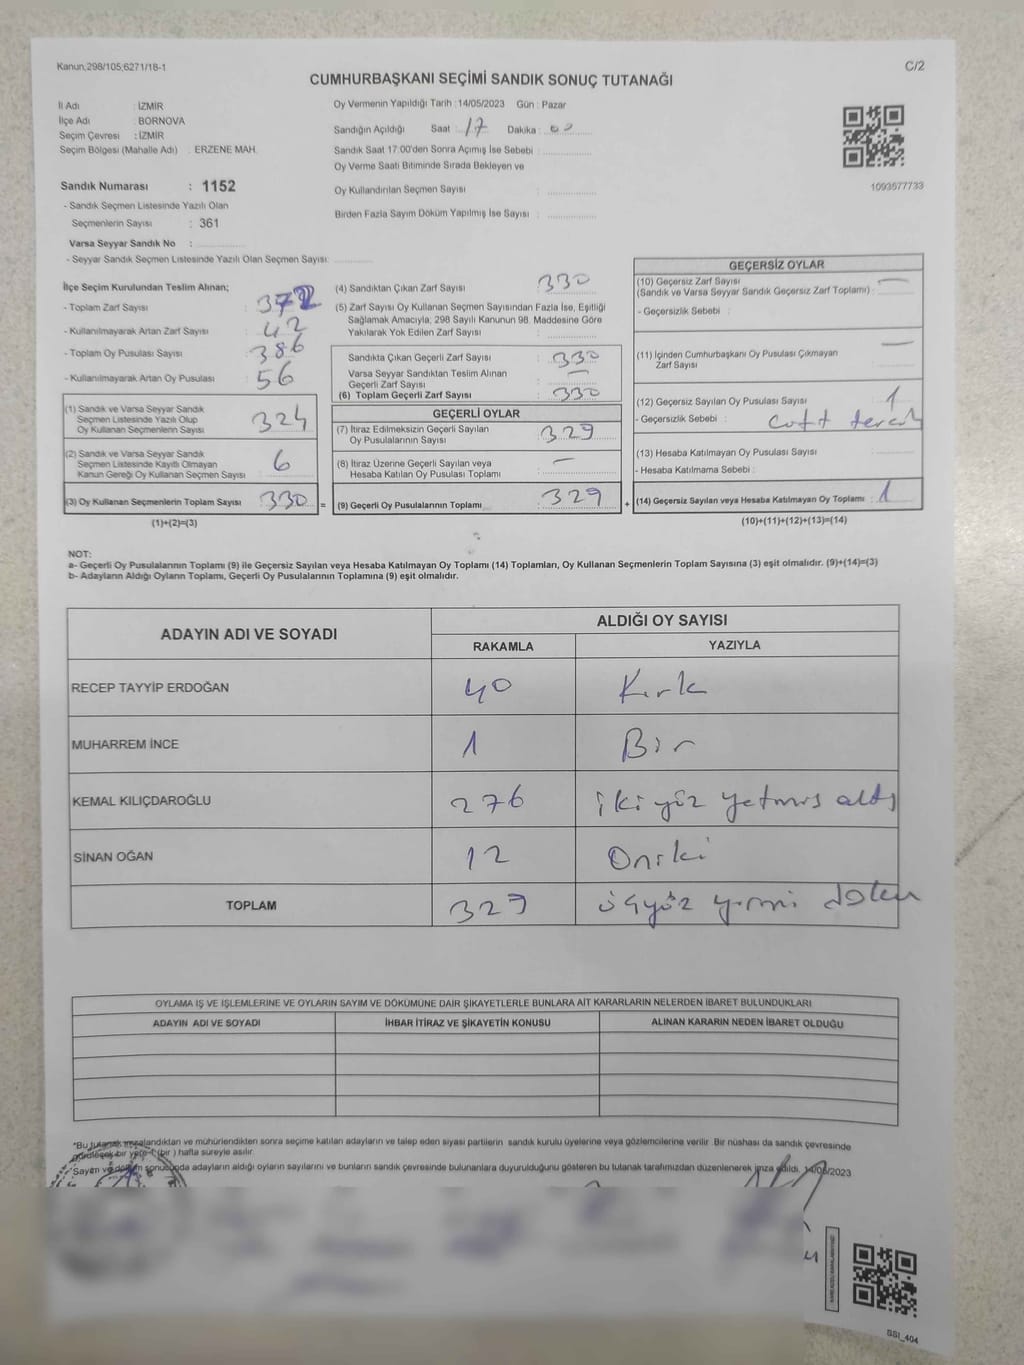 Kanun,298/105;6271/18-1
C/2
CUMHURBAŞKANI SEÇİMİ SANDIK SONUÇ TUTANAĞI
İl Adı : İZMİR
İlçe Adı : BORNOVA
Seçim Çevresi : İZMİR
Seçim Bölgesi (Mahalle Adı) : ERZENE MAH.
Oy Vermenin Yapıldığı Tarih :14/05/2023 Gün : Pazar
Sandığın Açıldığı Saat : 17 Dakika : 00
Sandık Saat 17:00'den Sonra Açımış İse Sebebi :
Oy Verme Saati Bitiminde Sırada Bekleyen ve
Oy Kullandırılan Seçmen Sayısı :
Birden Fazla Sayım Döküm Yapılmış İse Sayısı :
1093577733
Sandık Numarası : 1152
- Sandık Seçmen Listesinde Yazılı Olan
Seçmenlerin Sayısı : 361
Varsa Seyyar Sandık No :
- Seyyar Sandık Seçmen Listesinde Yazılı Olan Seçmen Sayısı:
İlçe Seçim Kurulundan Teslim Alınan;
- Toplam Zarf Sayısı : 372
- Kullanılmayarak Artan Zarf Sayısı : 42
- Toplam Oy Pusulası Sayısı : 386
- Kullanılmayarak Artan Oy Pusulası : 56
(1) Sandık ve Varsa Seyyar Sandık
Seçmen Listesinde Yazılı Olup
Oy Kullanan Seçmenlerin Sayısı : 324
(2) Sandık ve Varsa Seyyar Sandık
Seçmen Listesinde Kayıtlı Olmayan
Kanun Gereği Oy Kullanan Seçmen Sayısı : 6
(3) Oy Kullanan Seçmenlerin Toplam Sayısı : 330 =
(1)+(2)=(3)
(4) Sandıktan Çıkan Zarf Sayısı : 330
(5) Zarf Sayısı Oy Kullanan Seçmen Sayısından Fazla İse, Eşitliği
Sağlamak Amacıyla; 298 Sayılı Kanunun 98. Maddesine Göre
Yakılarak Yok Edilen Zarf Sayısı :
Sandıkta Çıkan Geçerli Zarf Sayısı : 330
Varsa Seyyar Sandıktan Teslim Alınan
Geçerli Zarf Sayısı : —
(6) Toplam Geçerli Zarf Sayısı : 330
GEÇERLİ OYLAR
(7) İtiraz Edilmeksizin Geçerli Sayılan
Oy Pusulalarının Sayısı : 329
(8) İtiraz Üzerine Geçerli Sayılan veya
Hesaba Katılan Oy Pusulası Toplamı : —
(9) Geçerli Oy Pusulalarının Toplamı : 329 +
GEÇERSİZ OYLAR
(10) Geçersiz Zarf Sayısı
(Sandık ve Varsa Seyyar Sandık Geçersiz Zarf Toplamı) : —
- Geçersizlik Sebebi :
(11) İçinden Cumhurbaşkanı Oy Pusulası Çıkmayan
Zarf Sayısı : —
(12) Geçersiz Sayılan Oy Pusulası Sayısı : 1
- Geçersizlik Sebebi : Çift tercih
(13) Hesaba Katılmayan Oy Pusulası Sayısı :
- Hesaba Katılmama Sebebi :
(14) Geçersiz Sayılan veya Hesaba Katılmayan Oy Toplamı : 1
(10)+(11)+(12)+(13)=(14)
NOT:
a- Geçerli Oy Pusulalarının Toplamı (9) ile Geçersiz Sayılan veya Hesaba Katılmayan Oy Toplamı (14) Toplamları, Oy Kullanan Seçmenlerin Toplam Sayısına (3) eşit olmalıdır. (9)+(14)=(3)
b- Adayların Aldığı Oyların Toplamı, Geçerli Oy Pusulalarının Toplamına (9) eşit olmalıdır.
ADAYIN ADI VE SOYADI
ALDIĞI OY SAYISI
RAKAMLA YAZIYLA
RECEP TAYYİP ERDOĞAN 40 Kırk
MUHARREM İNCE 1 Bir
KEMAL KILIÇDAROĞLU 276 iki yüz yetmiş altı
SİNAN OĞAN 12 Oniki
TOPLAM 329 üçyüz yirmi dokuz
OYLAMA İŞ VE İŞLEMLERİNE VE OYLARIN SAYIM VE DÖKÜMÜNE DAİR ŞİKAYETLERLE BUNLARA AİT KARARLARIN NELERDEN İBARET BULUNDUKLARI
ADAYIN ADI VE SOYADI İHBAR İTİRAZ VE ŞİKAYETİN KONUSU ALINAN KARARIN NEDEN İBARET OLDUĞU
*Bu tutanak imzalandıktan ve mühürlendikten sonra seçime katılan adayların ve talep eden siyasi partilerin sandık kurulu üyelerine veya gözlemcilerine verilir. Bir nüshası da sandık çevresinde
görülecek bir yere 1 (bir ) hafta süreyle asılır.
*Sayım ve döküm sonucunda adayların aldığı oyların sayılarını ve bunların sandık çevresinde bulunanlara duyurulduğunu gösteren bu tutanak tarafımızdan düzenlenerek imza edildi. 14/05/2023
SSI_404